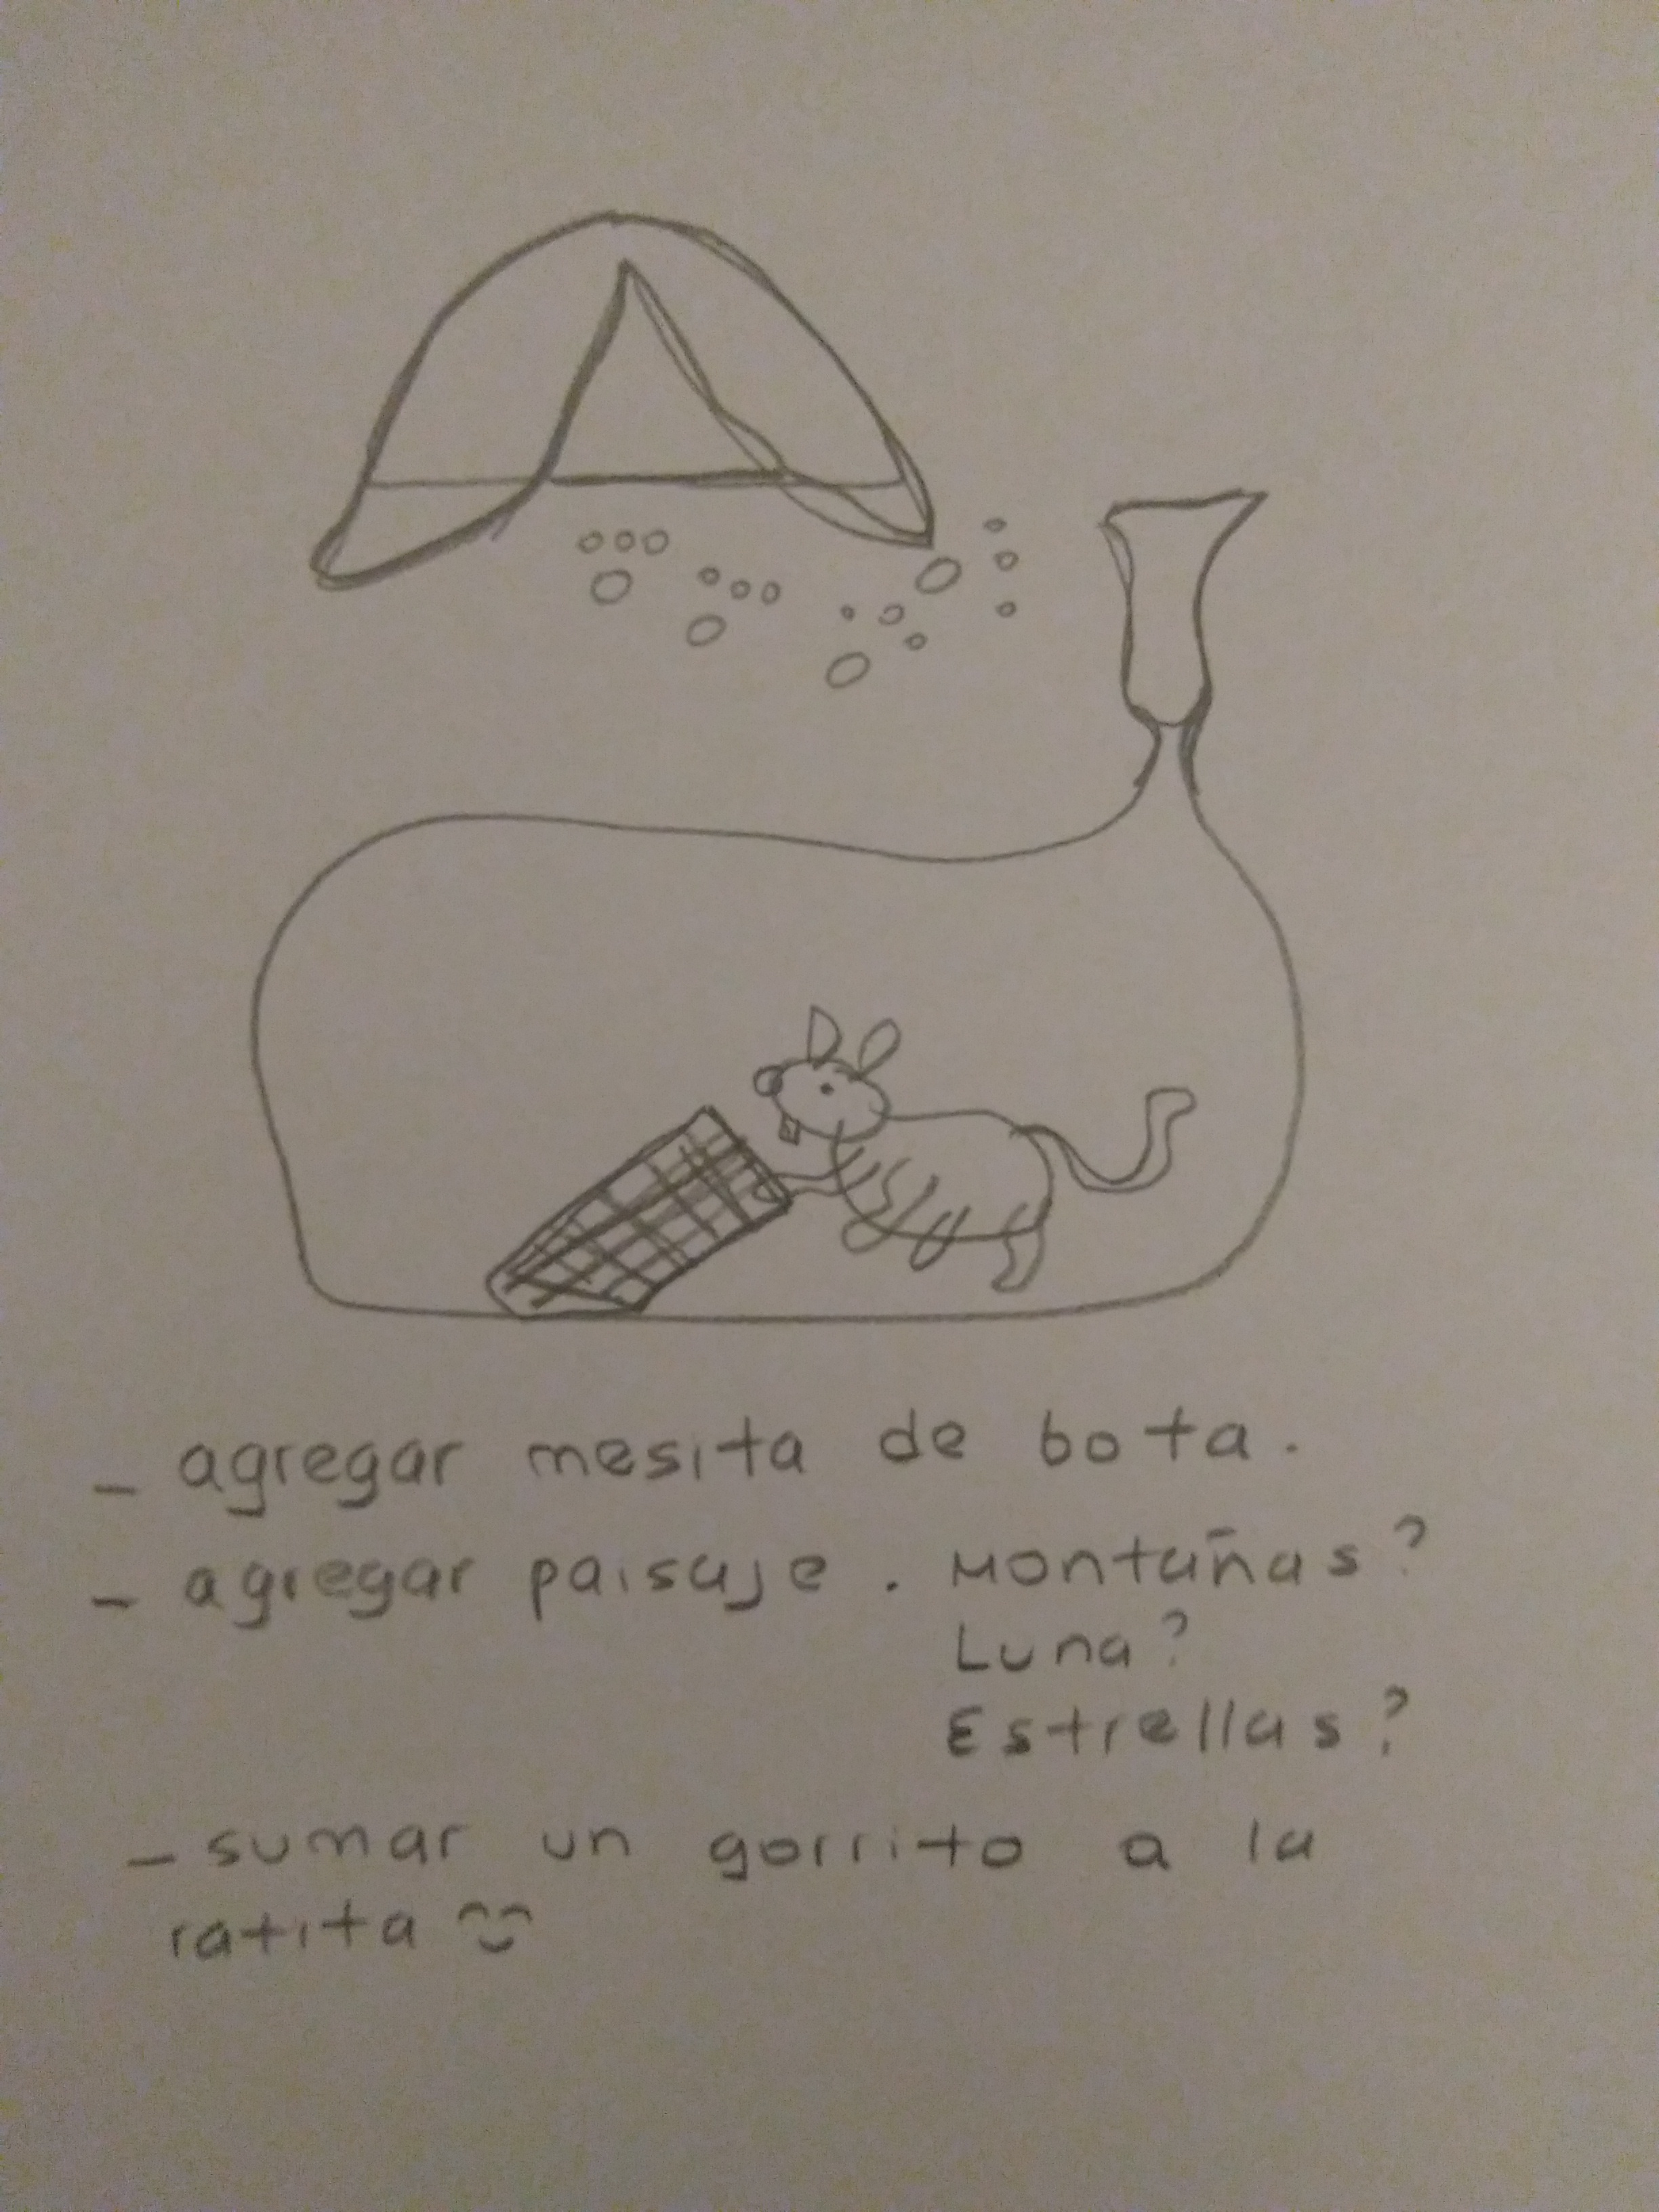 - agregar mesita de bota.
- agregar paisaje. Montañas?
Luna?
Estrellas?
- sumar un gorrito a la
ratita